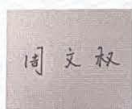 周文权